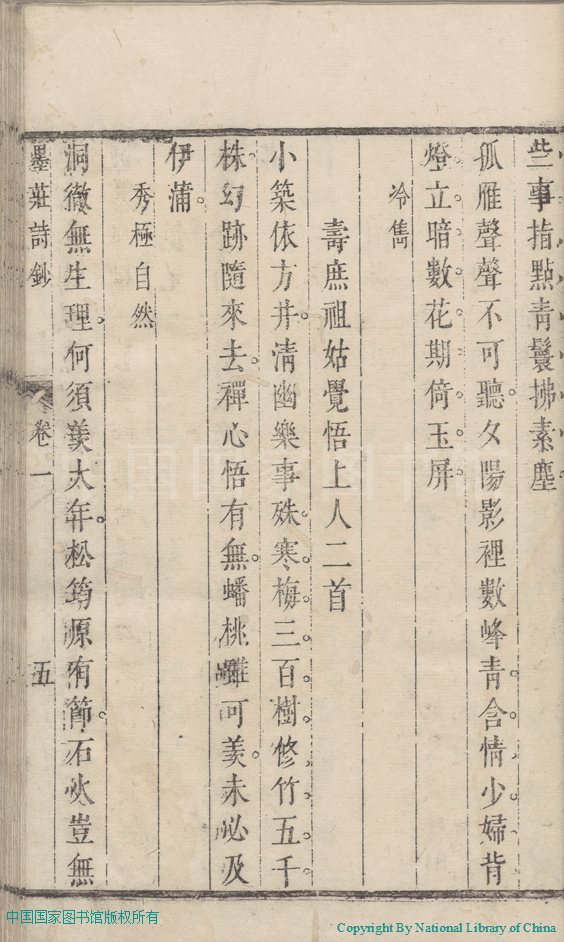 些事指點青鬟拂素塵。
孤雁聲聲不可聽。夕陽影裡數峰青。含情少婦背
燈立。暗數花期倚玉屏。
冷雋
壽庶祖姑覺悟上人二首
小築依方井。清幽樂事殊。寒梅三百樹。修竹五千
株。幻跡隨來去。禪心悟有無。蟠桃雖可羨。未必及
伊蒲。
秀極自然
洞徹無生理。何須羨大年。松筠原有節。石火豈無
墨莊詩鈔 卷一 五
中国国家图书馆版权所有
Copyright By National Library of China